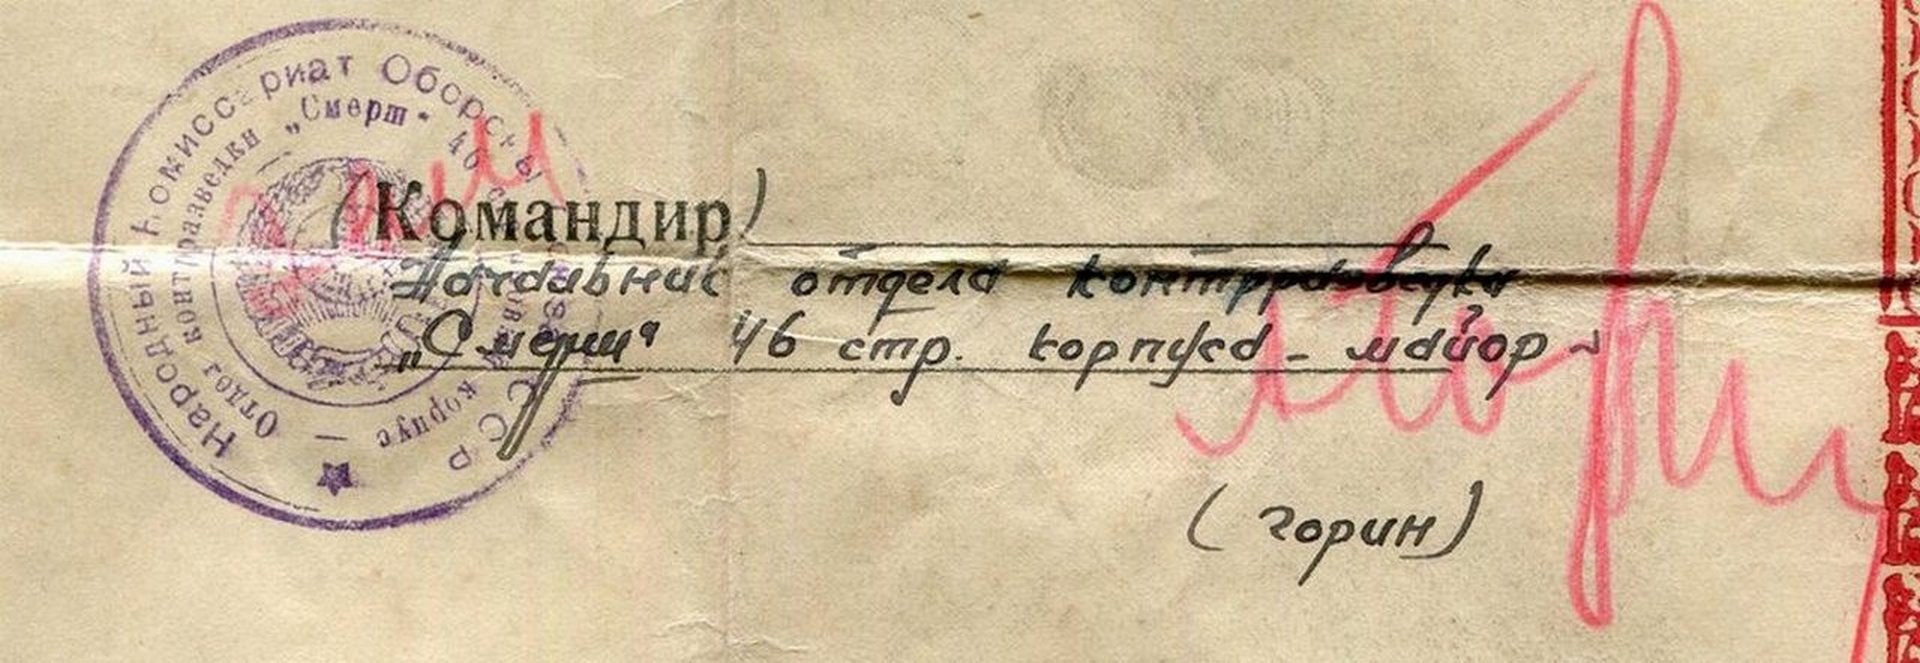 Народный Комиссариат Обороны СССР
Отдел контрразведки „Смерш“ 46 стрелковый корпус —
(Командир)
Начальник отдела контрразведки
„Смерш“ 46 стр. корпуса – майор –
(горин)